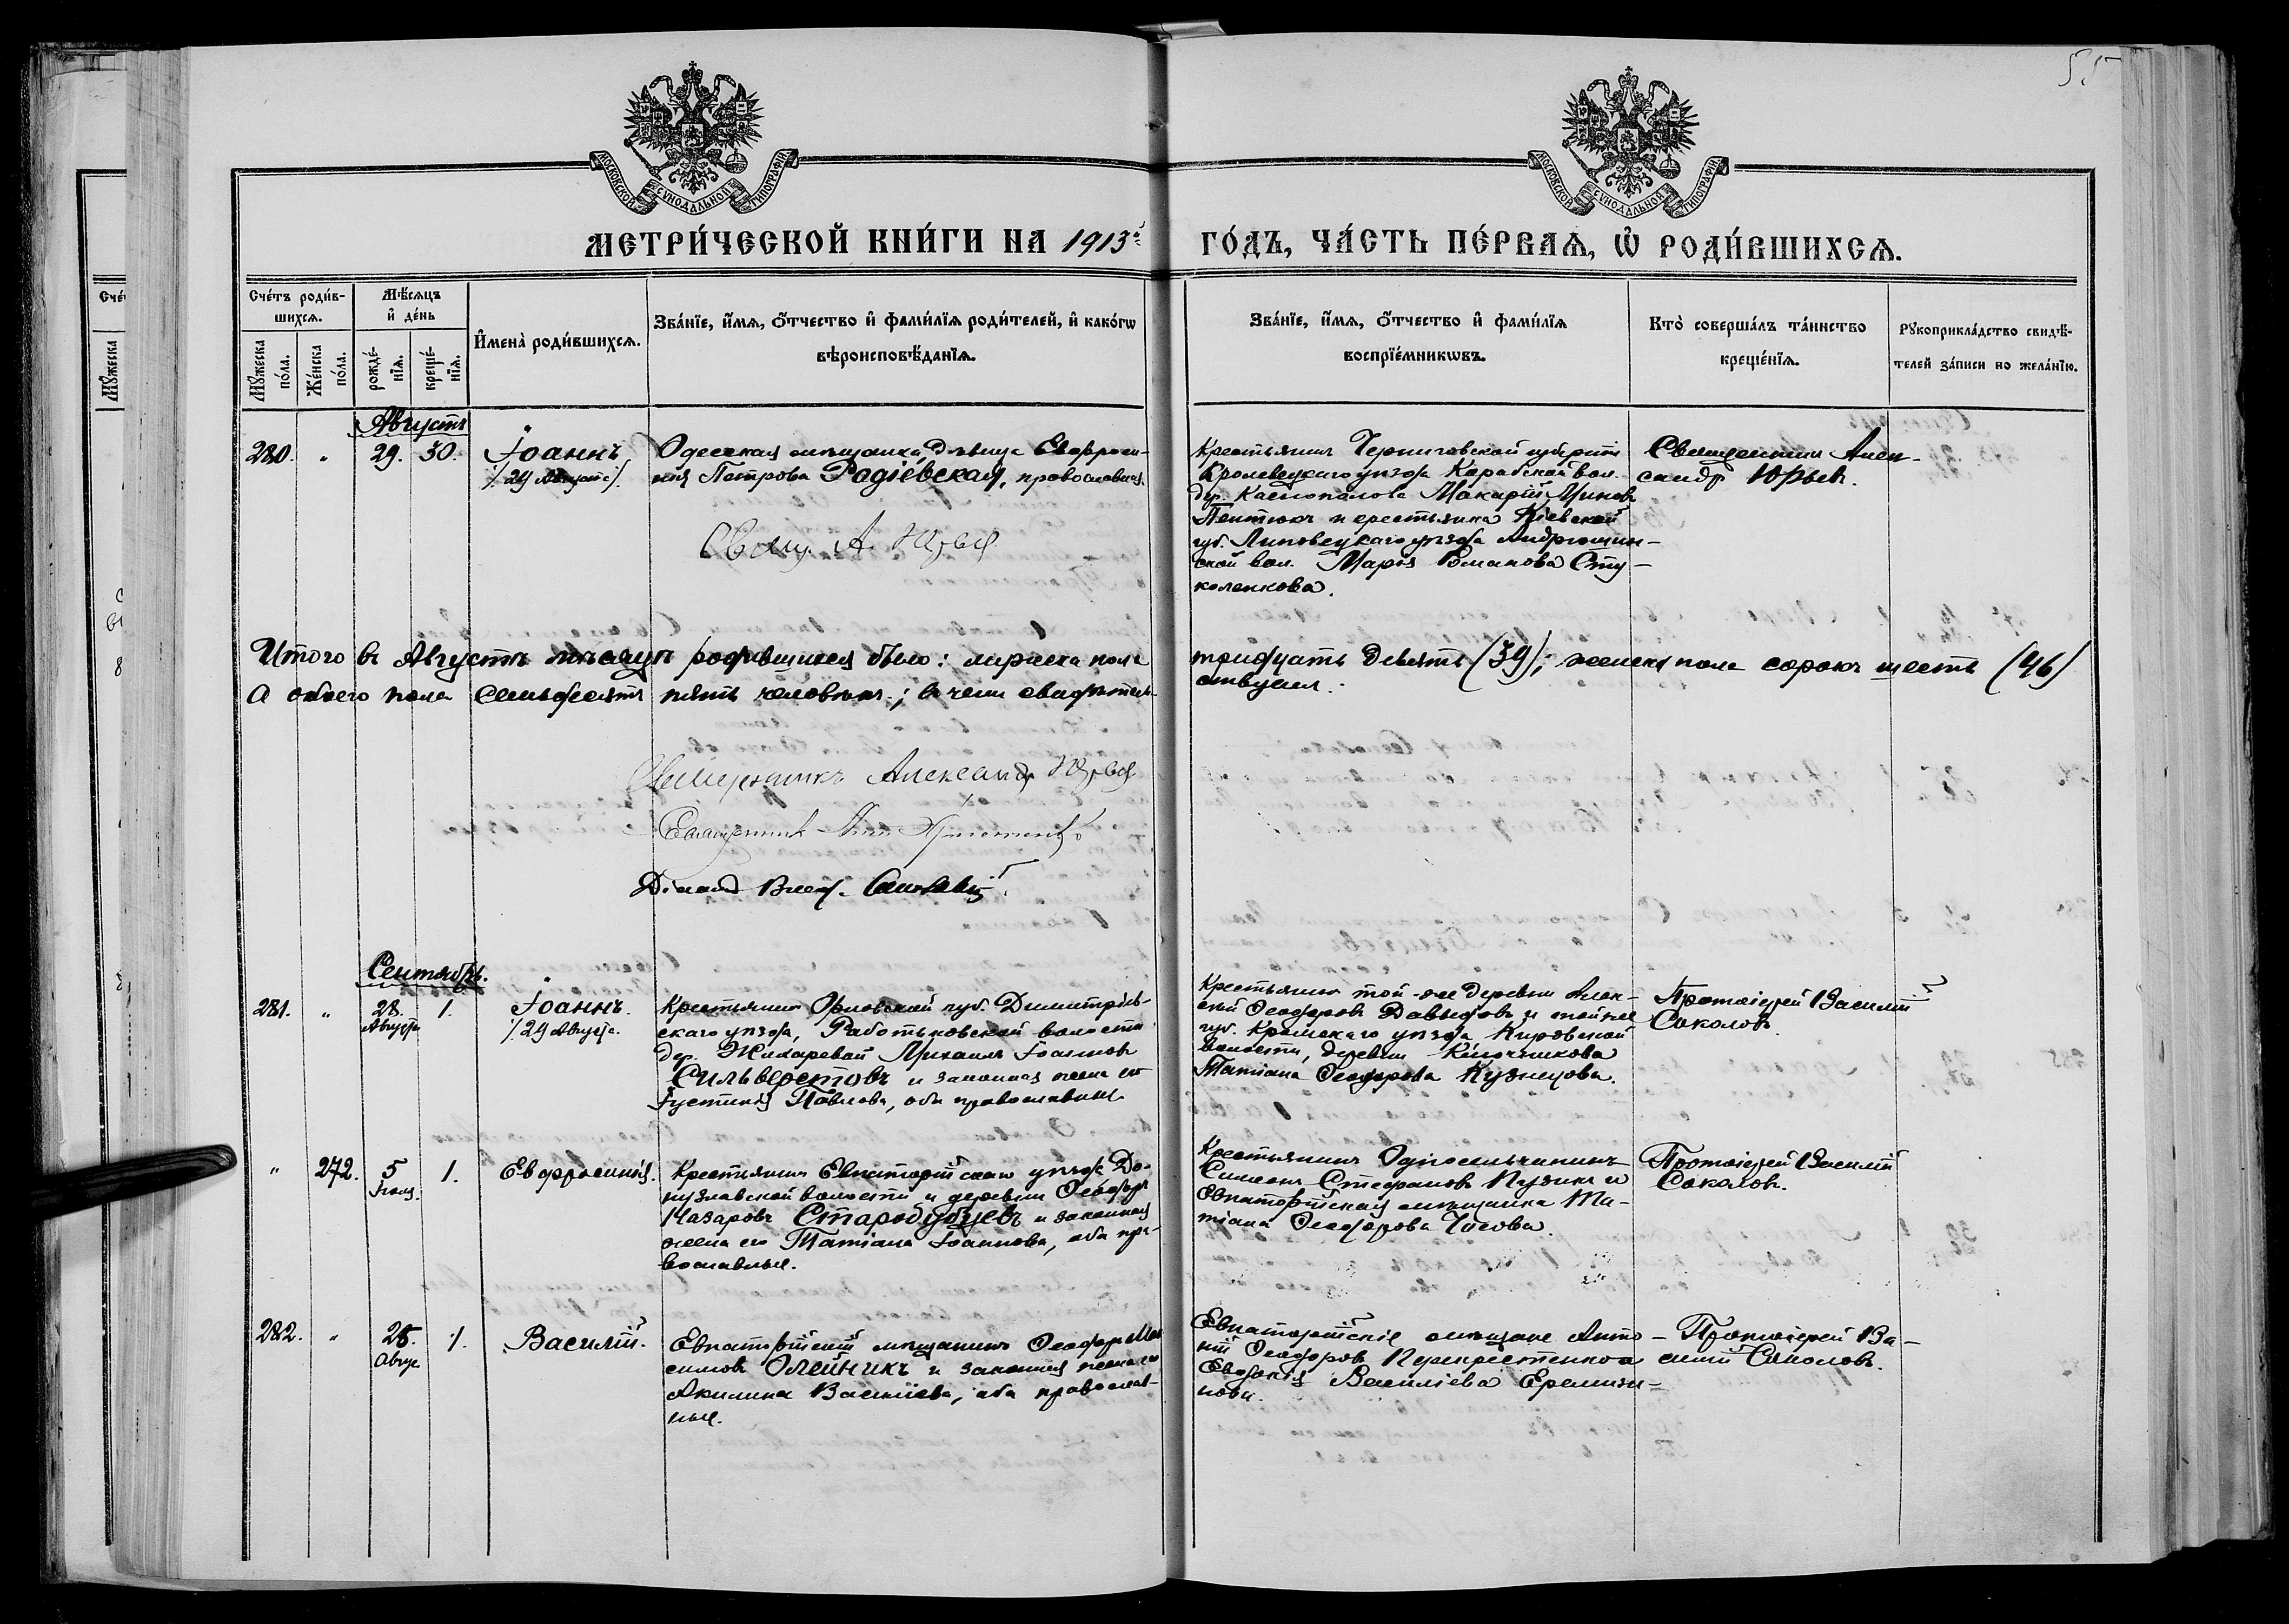 55
МОСКОВСКОЙ СѴНОДАЛЬНОЙ ТИПОГРАФІИ
МОСКОВСКОЙ СѴНОДАЛЬНОЙ ТИПОГРАФІИ
МЕТРИ́ЧЕСКОЙ КНИ́ГИ НА 1913й ГО́ДЪ, ЧА́СТЬ ПЕ́РВАѦ, Ѡ҆ РОДИ́ВШИХСѦ.
Сче́тъ роди́в-
шихсѧ.
Мꙋ́жеска по́ла.
Же́нска по́ла.
Мѣ́сѧцъ
и҆ де́нь
рожде́-
нїѧ.
креще́-
нїѧ.
И҆мена̀ роди́вшихсѧ.
Зва́нїе, и҆́мѧ, ѻ҆́тчество и҆ фами́лїѧ роди́телей, и҆ како́гѡ
вѣроисповѣ́данїѧ.
Зва́нїе, и҆́мѧ, ѻ҆́тчество и҆ фами́лїѧ
воспрїе́мникѡвъ.
Кто̀ соверша́лъ та́инство
креще́нїѧ.
Рꙋкоприкла́дство свидѣ́-
телей за́писи по жела́нїю.
Августъ
280. " 29. 30.
Іоаннъ
/29 Августа/.
Одесская мѣщанка дѣвица Евфроси-
нія Петрова Радіевская, православная.
Свящ. А. Юрьев
Крестьянин Черниговской губерніи
Кролевецкаго уѣзда Карабской вол.
дер. Макарій Миновъ
и крестьянка Кіевской
губ. Липовецкаго уѣзда Андрюшин-
ской вол. Марія Романова Сту-
коленкова.
Священник Алек-
сандр Юрьев.
Итого въ Августѣ мѣсяцѣ родившихся было: мужеска пола тридцать девять (39); женска пола сорокъ шесть (46)
а обоего пола семьдесятъ пять человѣкъ; въ чемъ свидѣтель-
ствуемъ.
Священникъ Александр Юрьев
Священник
Діаконъ
Сентябрь.
281. " 28. Августа 1.
Іоаннъ.
/29 Августа.
Крестьянин Орловской губ. Димитров-
скаго уѣзда, Работьковской волости
дер. Жихаревой Михаилъ Іоаннов
Сильверстовъ и законная жена его
Іустинія Павлова, оба православные
Крестьянин той-же деревни Алек-
сѣй Ѳеодоровъ Давыдовъ и той же
губ. Кромскаго уѣзда, Кировской
волости, деревни Ключникова
Татіана Ѳеодорова Кузнецова.
Протоіерей Василій
Соколовъ.
" 272. 5 1.
Евфросинія.
Крестьянин Евпаторійскаго уѣзда До-
нузлавской волости и деревни Ѳеодоръ
Назаровъ Стародубцевъ и законная
жена его Татіана Іоаннова, оба пра-
вославные.
Крестьянинъ Односельчанинъ
Симеонъ Стефановъ Пузикъ и
Евпаторійская мѣщанка Та-
тіана Ѳеодорова Чисова.
Протоіерей Василій
Соколовъ.
282. " 25. Авгус 1.
Василій.
Евпаторійскій мѣщанинъ Ѳеодоръ Мак
симов Олейникъ и законная жена его
Акилина Василіева, оба православ-
ные.
Евпаторійскіе мѣщане Анто-
ній Ѳеодоровъ Перекрестенко и
Евдокія Василіева
нова.
Протоіерей Ва-
силій Соколовъ.